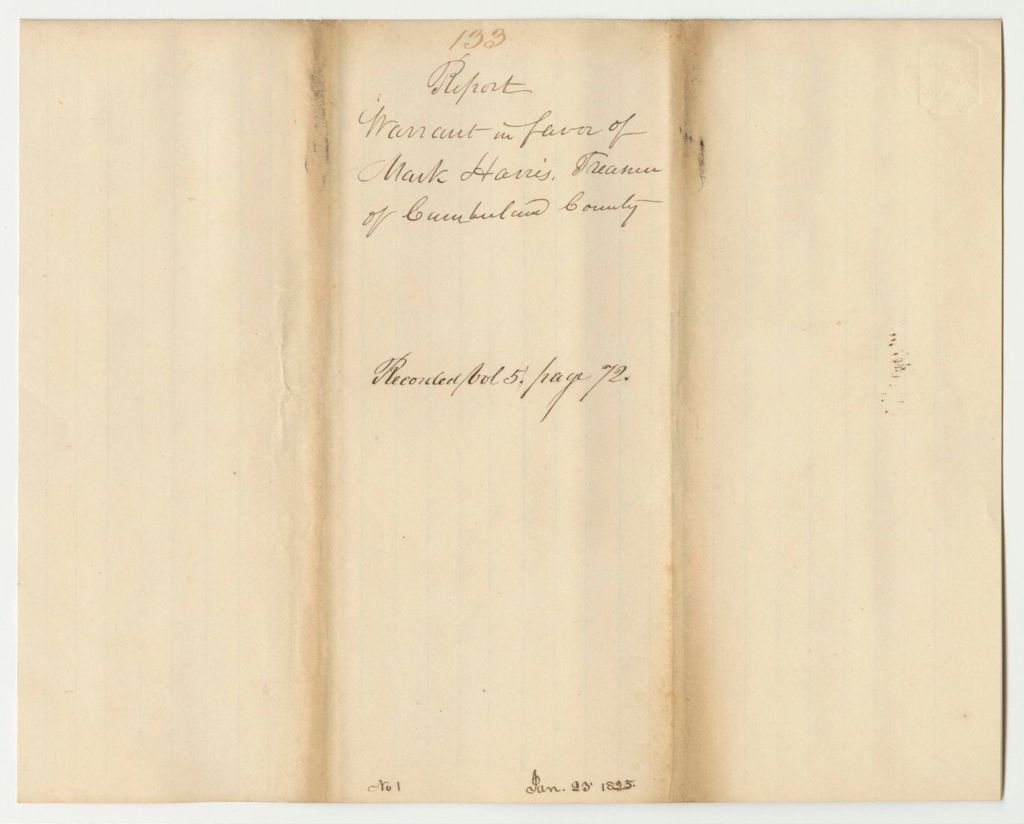 133
Report
Warrant in favor of
Mark Harris, Treasurer
of Cumberland County
Recorded Vol 5. page 72.
No 1
Jan. 25 1825.